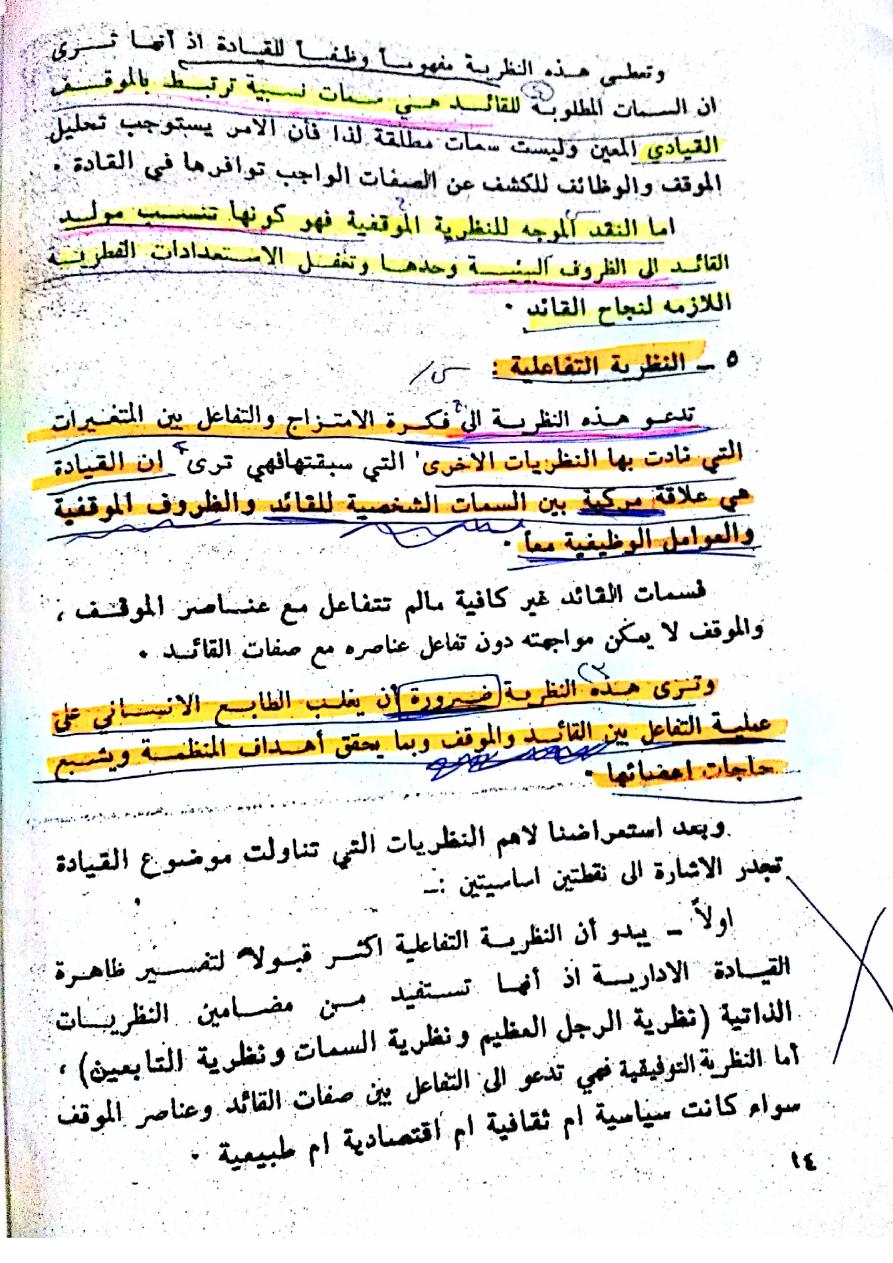 وتعطي هذه النظرية مفهوماً وظيفاً للقيادة اذ أنها ترى
ان السمات المطلوبة للقائد هي سمات نسبية ترتبط بالموقف
القيادي المعين وليست سمات مطلقة لذا فأن الامر يستوجب تحليل
الموقف والوظائف للكشف عن الصفات الواجب توافرها في القادة .
اما النقد الموجه للنظرية الموقفية فهو كونها تنسب مولد
القائد الى الظروف البيئية وحدها وتغفل الاستعدادات الفطرية
اللازمه لنجاح القائد .
٥ ــ النظرية التفاعلية :
تدعو هذه النظرية الى فكرة الامتزاج والتفاعل بين المتغيرات
التي نادت بها النظريات الاخرى التي سبقتهافهي ترى ان القيادة
هي علاقة مركبة بين السمات الشخصية للقائد والظروف الموقفية
والعوامل الوظيفية معاً .
فسمات القائد غير كافية مالم تتفاعل مع عناصر الموقف ،
والموقف لا يمكن مواجهته دون تفاعل عناصره مع صفات القائد .
وترى هذه النظرية ضرورة أن يغلب الطابع الانساني على
عملية التفاعل بين القائد والموقف وبما يحقق أهداف المنظمة ويشبع
حاجات اعضائها .
وبعد استعراضنا لاهم النظريات التي تناولت موضوع القيادة
تجدر الاشارة الى نقطتين اساسيتين :ــ
اولاً ــ يبدو أن النظرية التفاعلية اكثر قبولا لتفسير ظاهرة
القيادة الادارية اذ أنها تستفيد من مضامين النظريات
الذاتية (نظرية الرجل العظيم ونظرية السمات ونظرية التابعين) ،
أما النظرية التوفيقية فهي تدعو الى التفاعل بين صفات القائد وعناصر الموقف
سواء كانت سياسية ام ثقافية ام اقتصادية ام طبيعية .
١٤